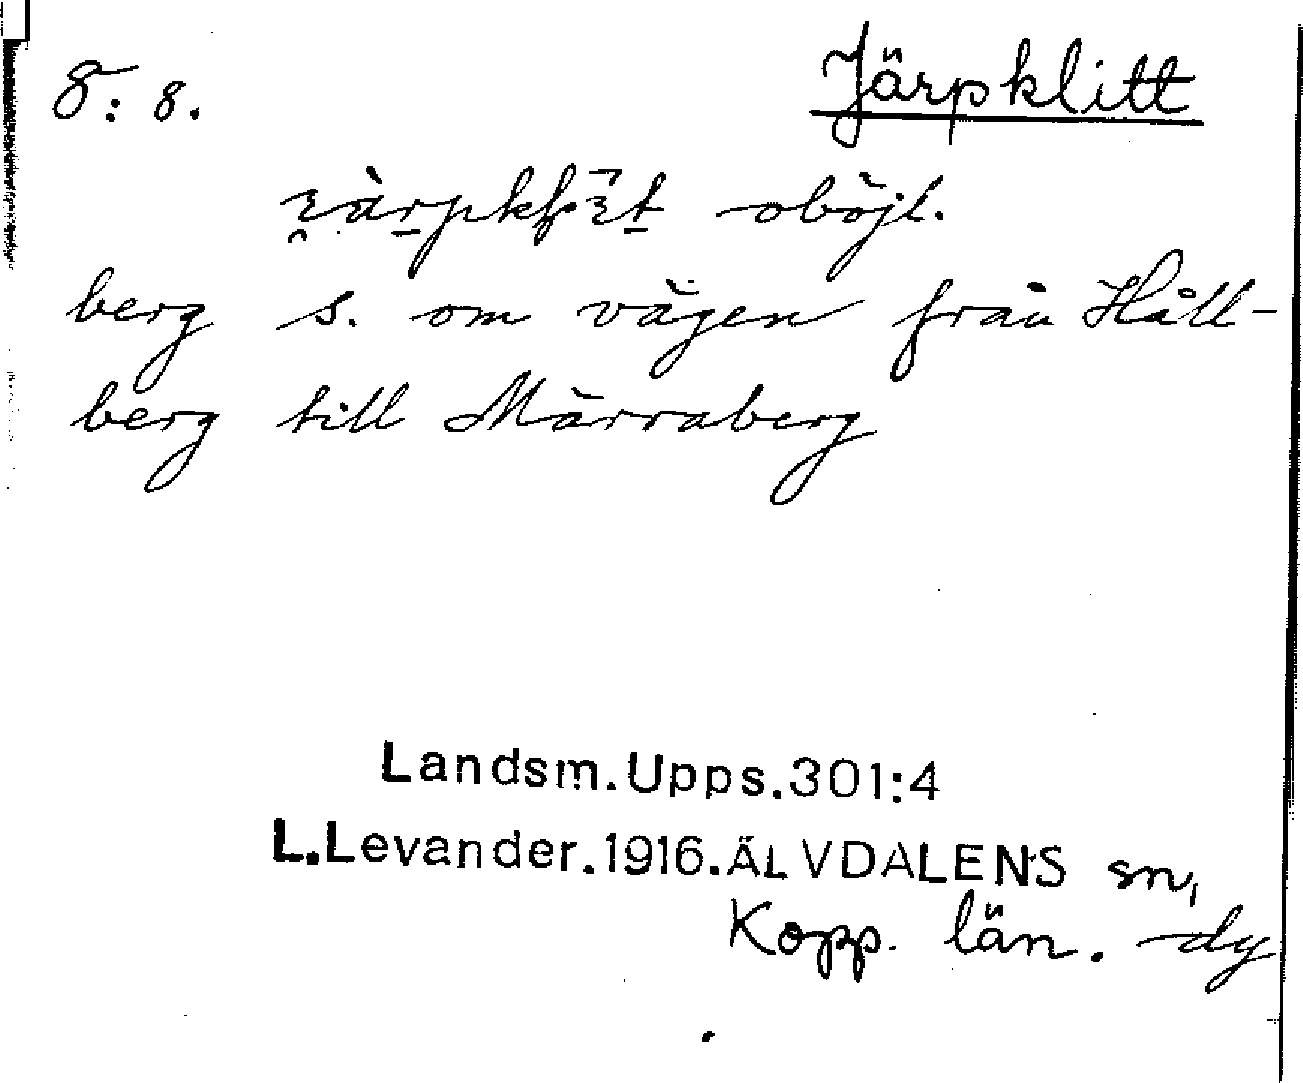 8: 8.
Järpklitt
oböjl.
berg s. om vägen från Håll-
berg till Märraberg
Landsm.Upps.301:4
L.Levander.1916.ÄLVDALENS sn,
Kopp. län. dy